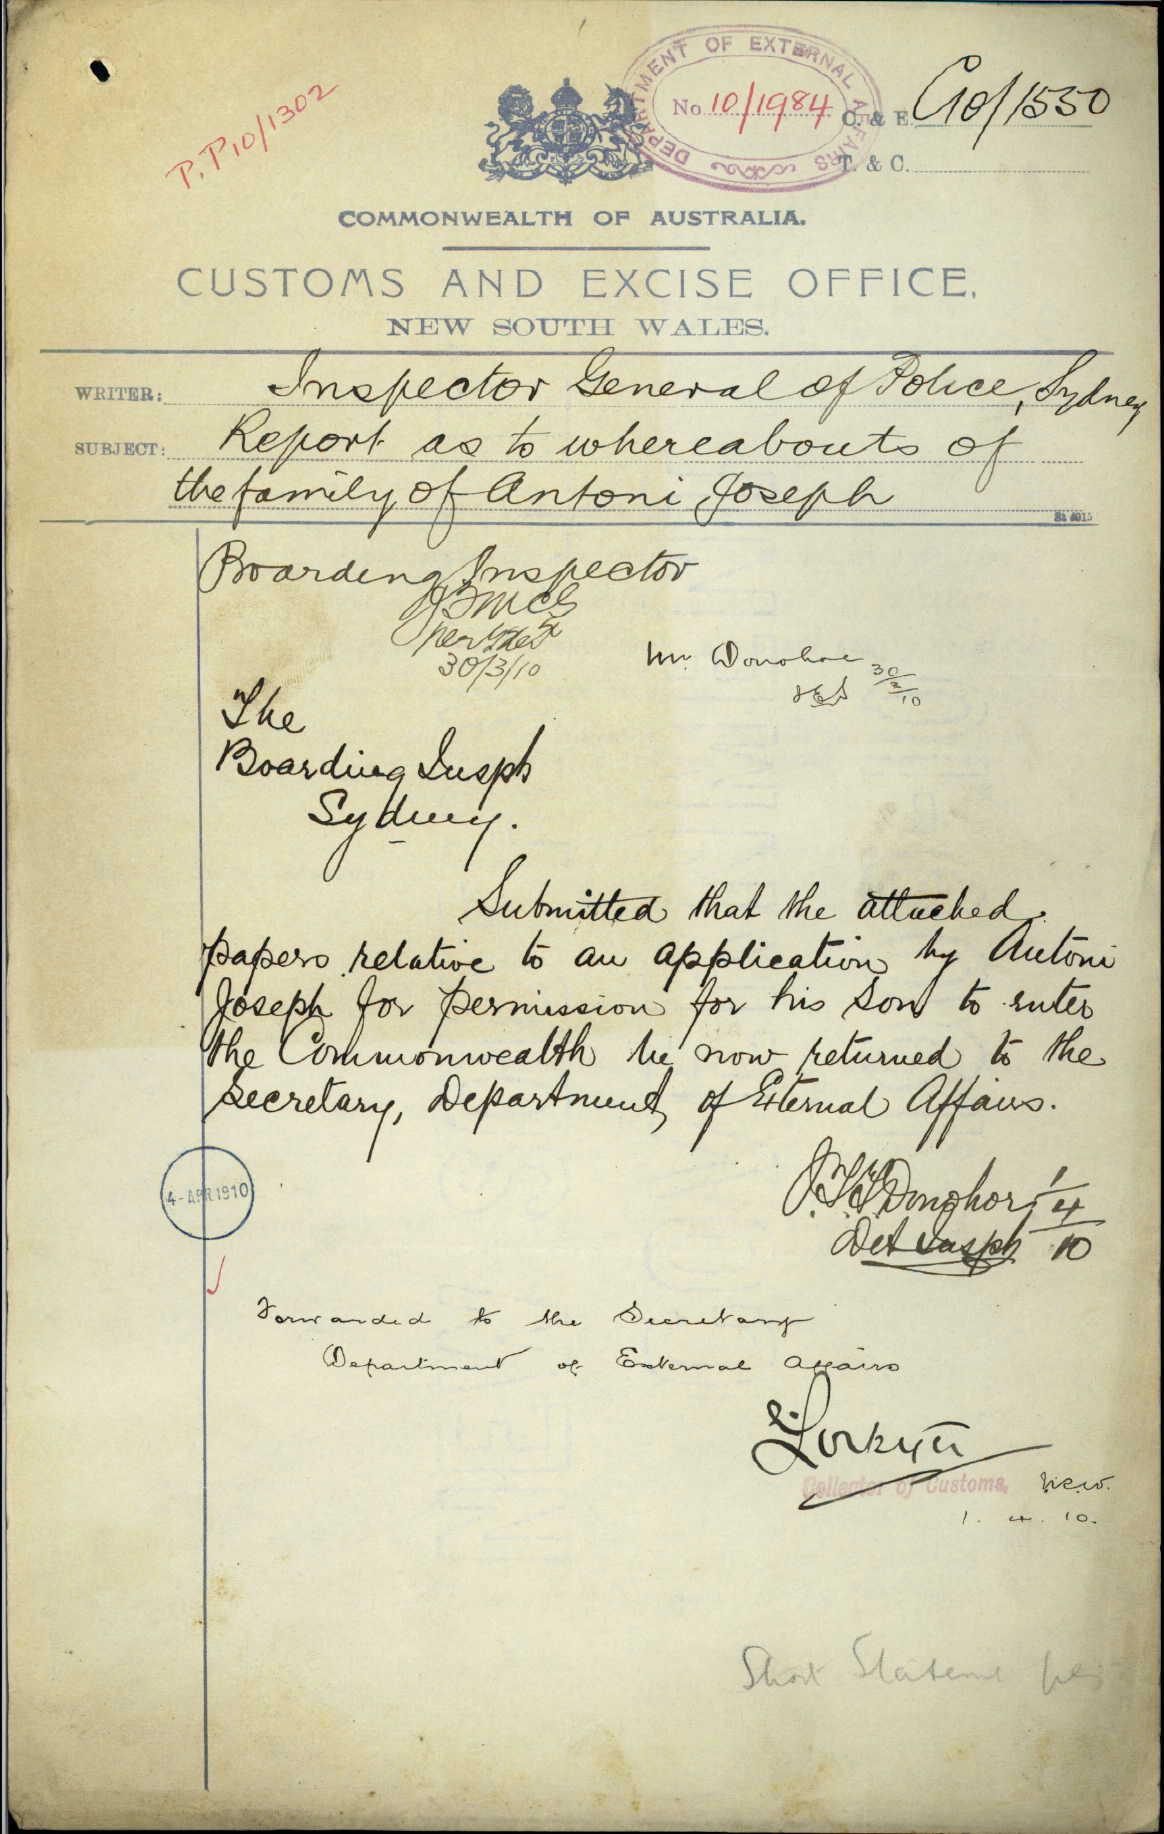 P.P10/1302
DEPARTMENT OF EXTERNAL AFFAIRS
No 10/1984
C. & E. C10/1550
T. & C.
COMMONWEALTH OF AUSTRALIA.
CUSTOMS AND EXCISE OFFICE,
NEW SOUTH WALES.
WRITER: Inspector General of Police, Sydney
SUBJECT: Report as to whereabouts of
the family of Antoni Joseph
Boarding Inspector
30/3/10
Mr. Donohoe
30/3/10
The
Boarding Inspr
Sydney.
Submitted that the attached
papers relative to an application by Antoni
Joseph for permission for his son to enter
the Commonwealth be now returned to the
Secretary, Department of External Affairs.
4-APR1910
J.T.T. Donohoe 1/4/10
Det Inspr
Forwarded to the Secretary
Department of External Affairs
Collector of Customs, N.S.W.
1. 4. 10.
Short Statement pls